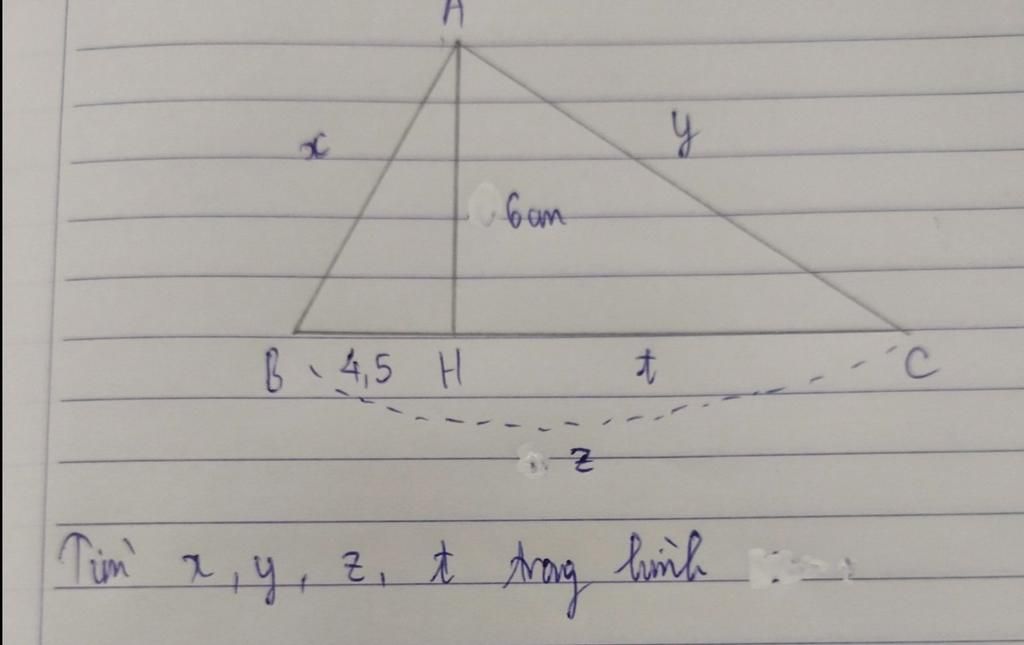 A
x y
6cm
B 4,5 H t C
z
Tìm x, y, z, t trong hình